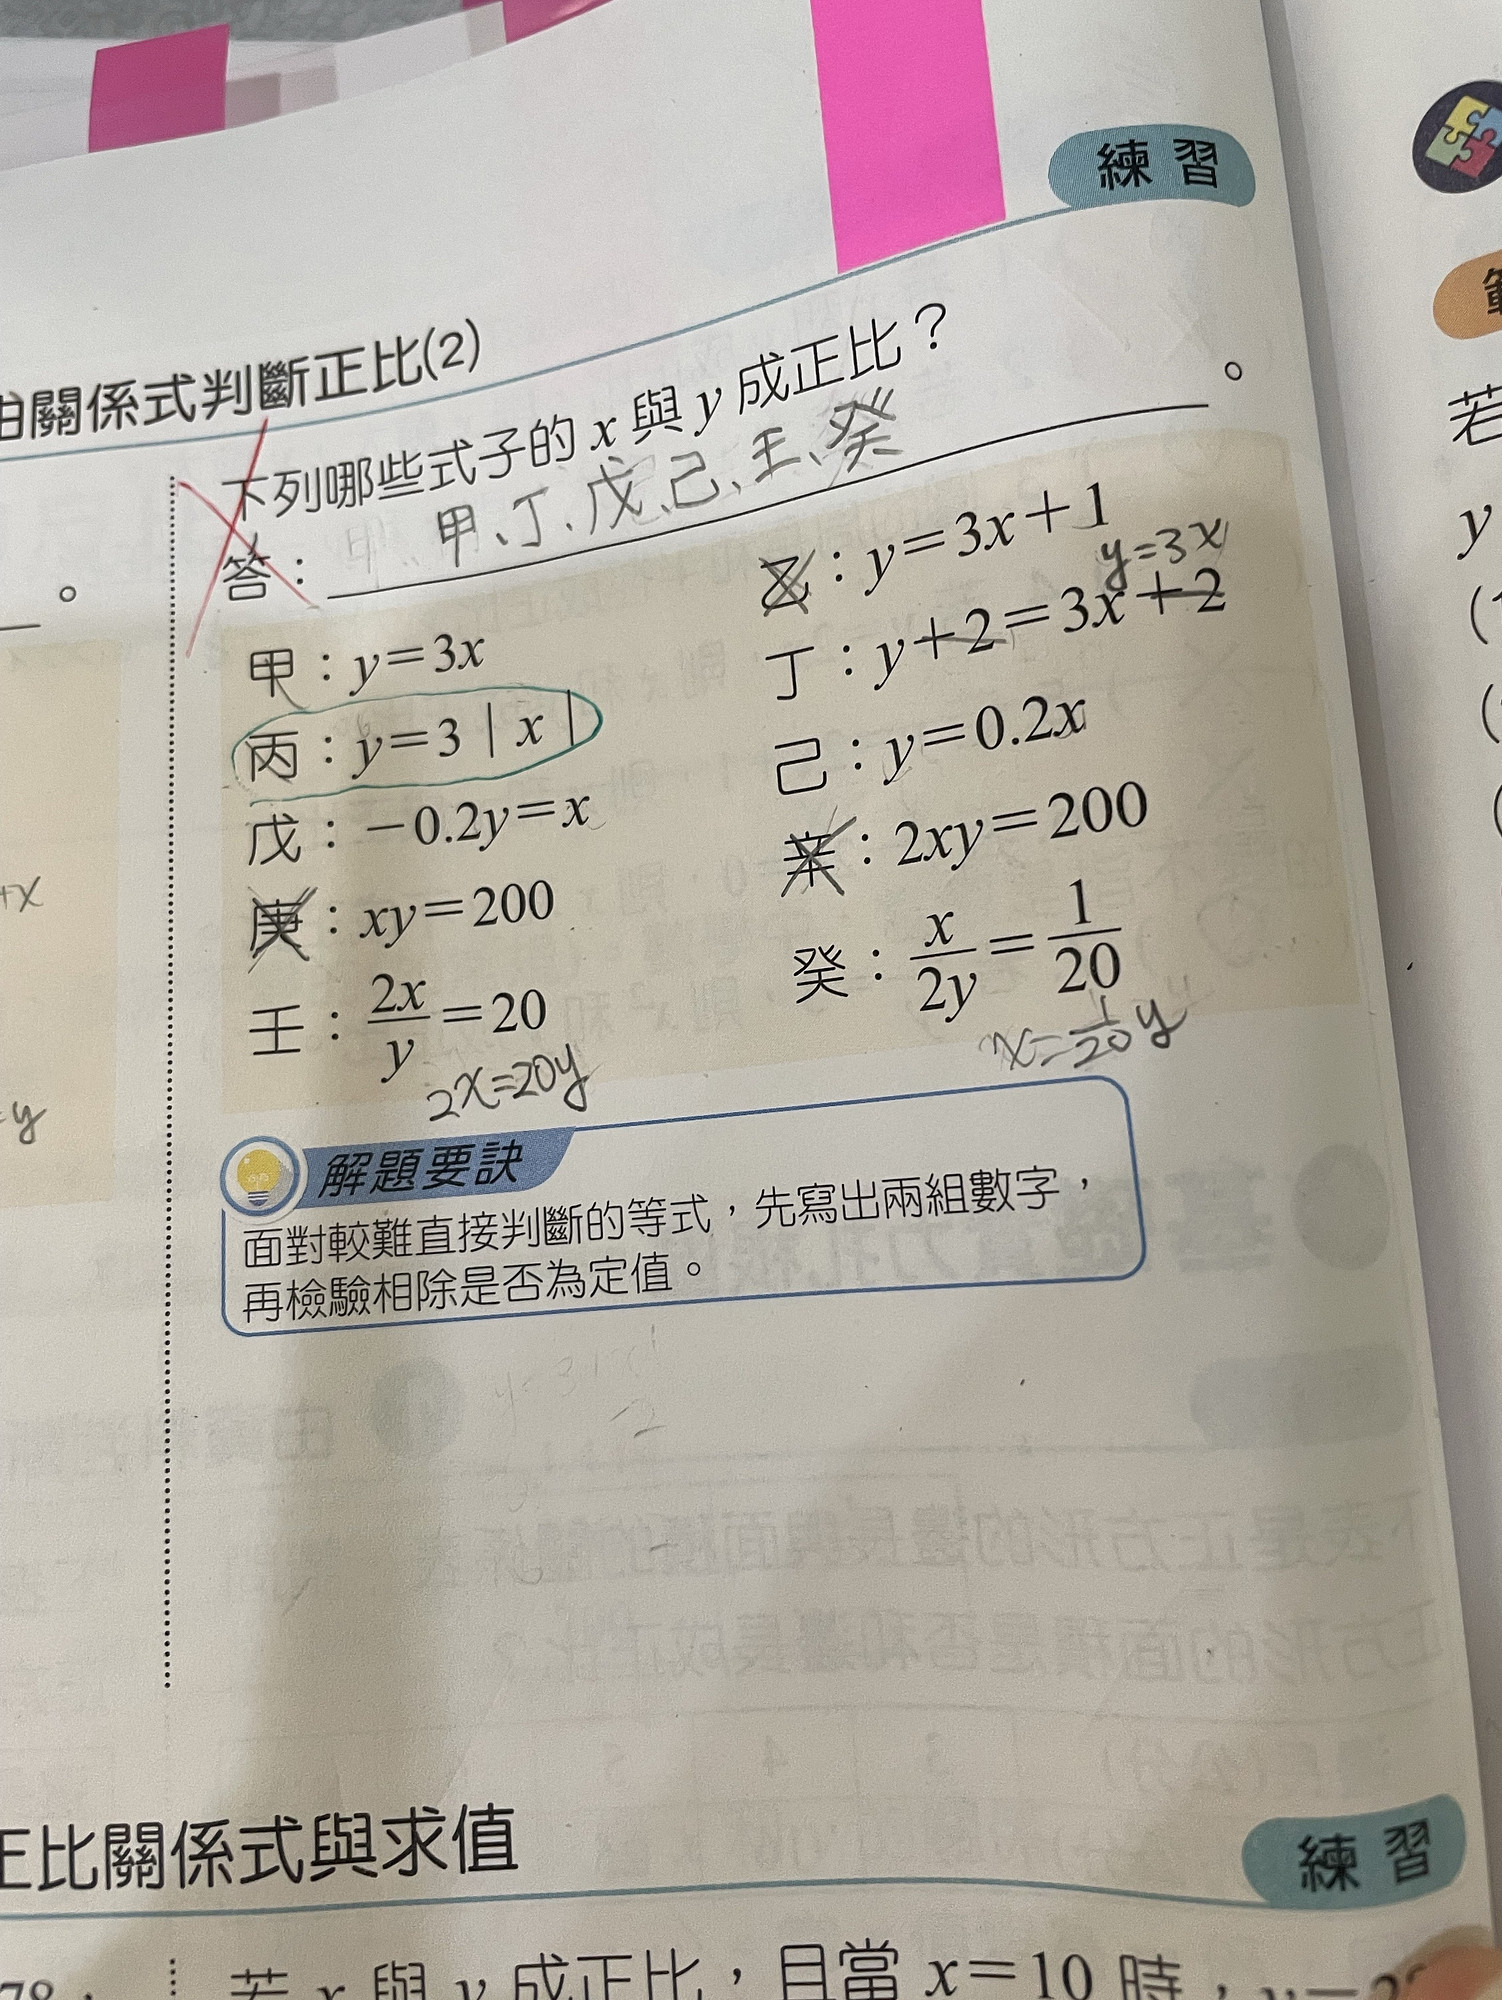 練習
由關係式判斷正比(2)
下列哪些式子的 x 與 y 成正比？
答：甲、丁、戊、己、壬、癸。
甲：y=3x
乙：y=3x+1
y=3x
丙：y=3｜x｜
丁：y+2=3x+2
戊：−0.2y=x
己：y=0.2x
庚：xy=200
辛：2xy=200
壬：2x/y=20
癸：x/2y=1/20
2x=20y
x=1/20y
解題要訣
面對較難直接判斷的等式，先寫出兩組數字，
再檢驗相除是否為定值。
正比關係式與求值
練習
若 x 與 y 成正比，且當 x=10 時，
+x
y
若
y